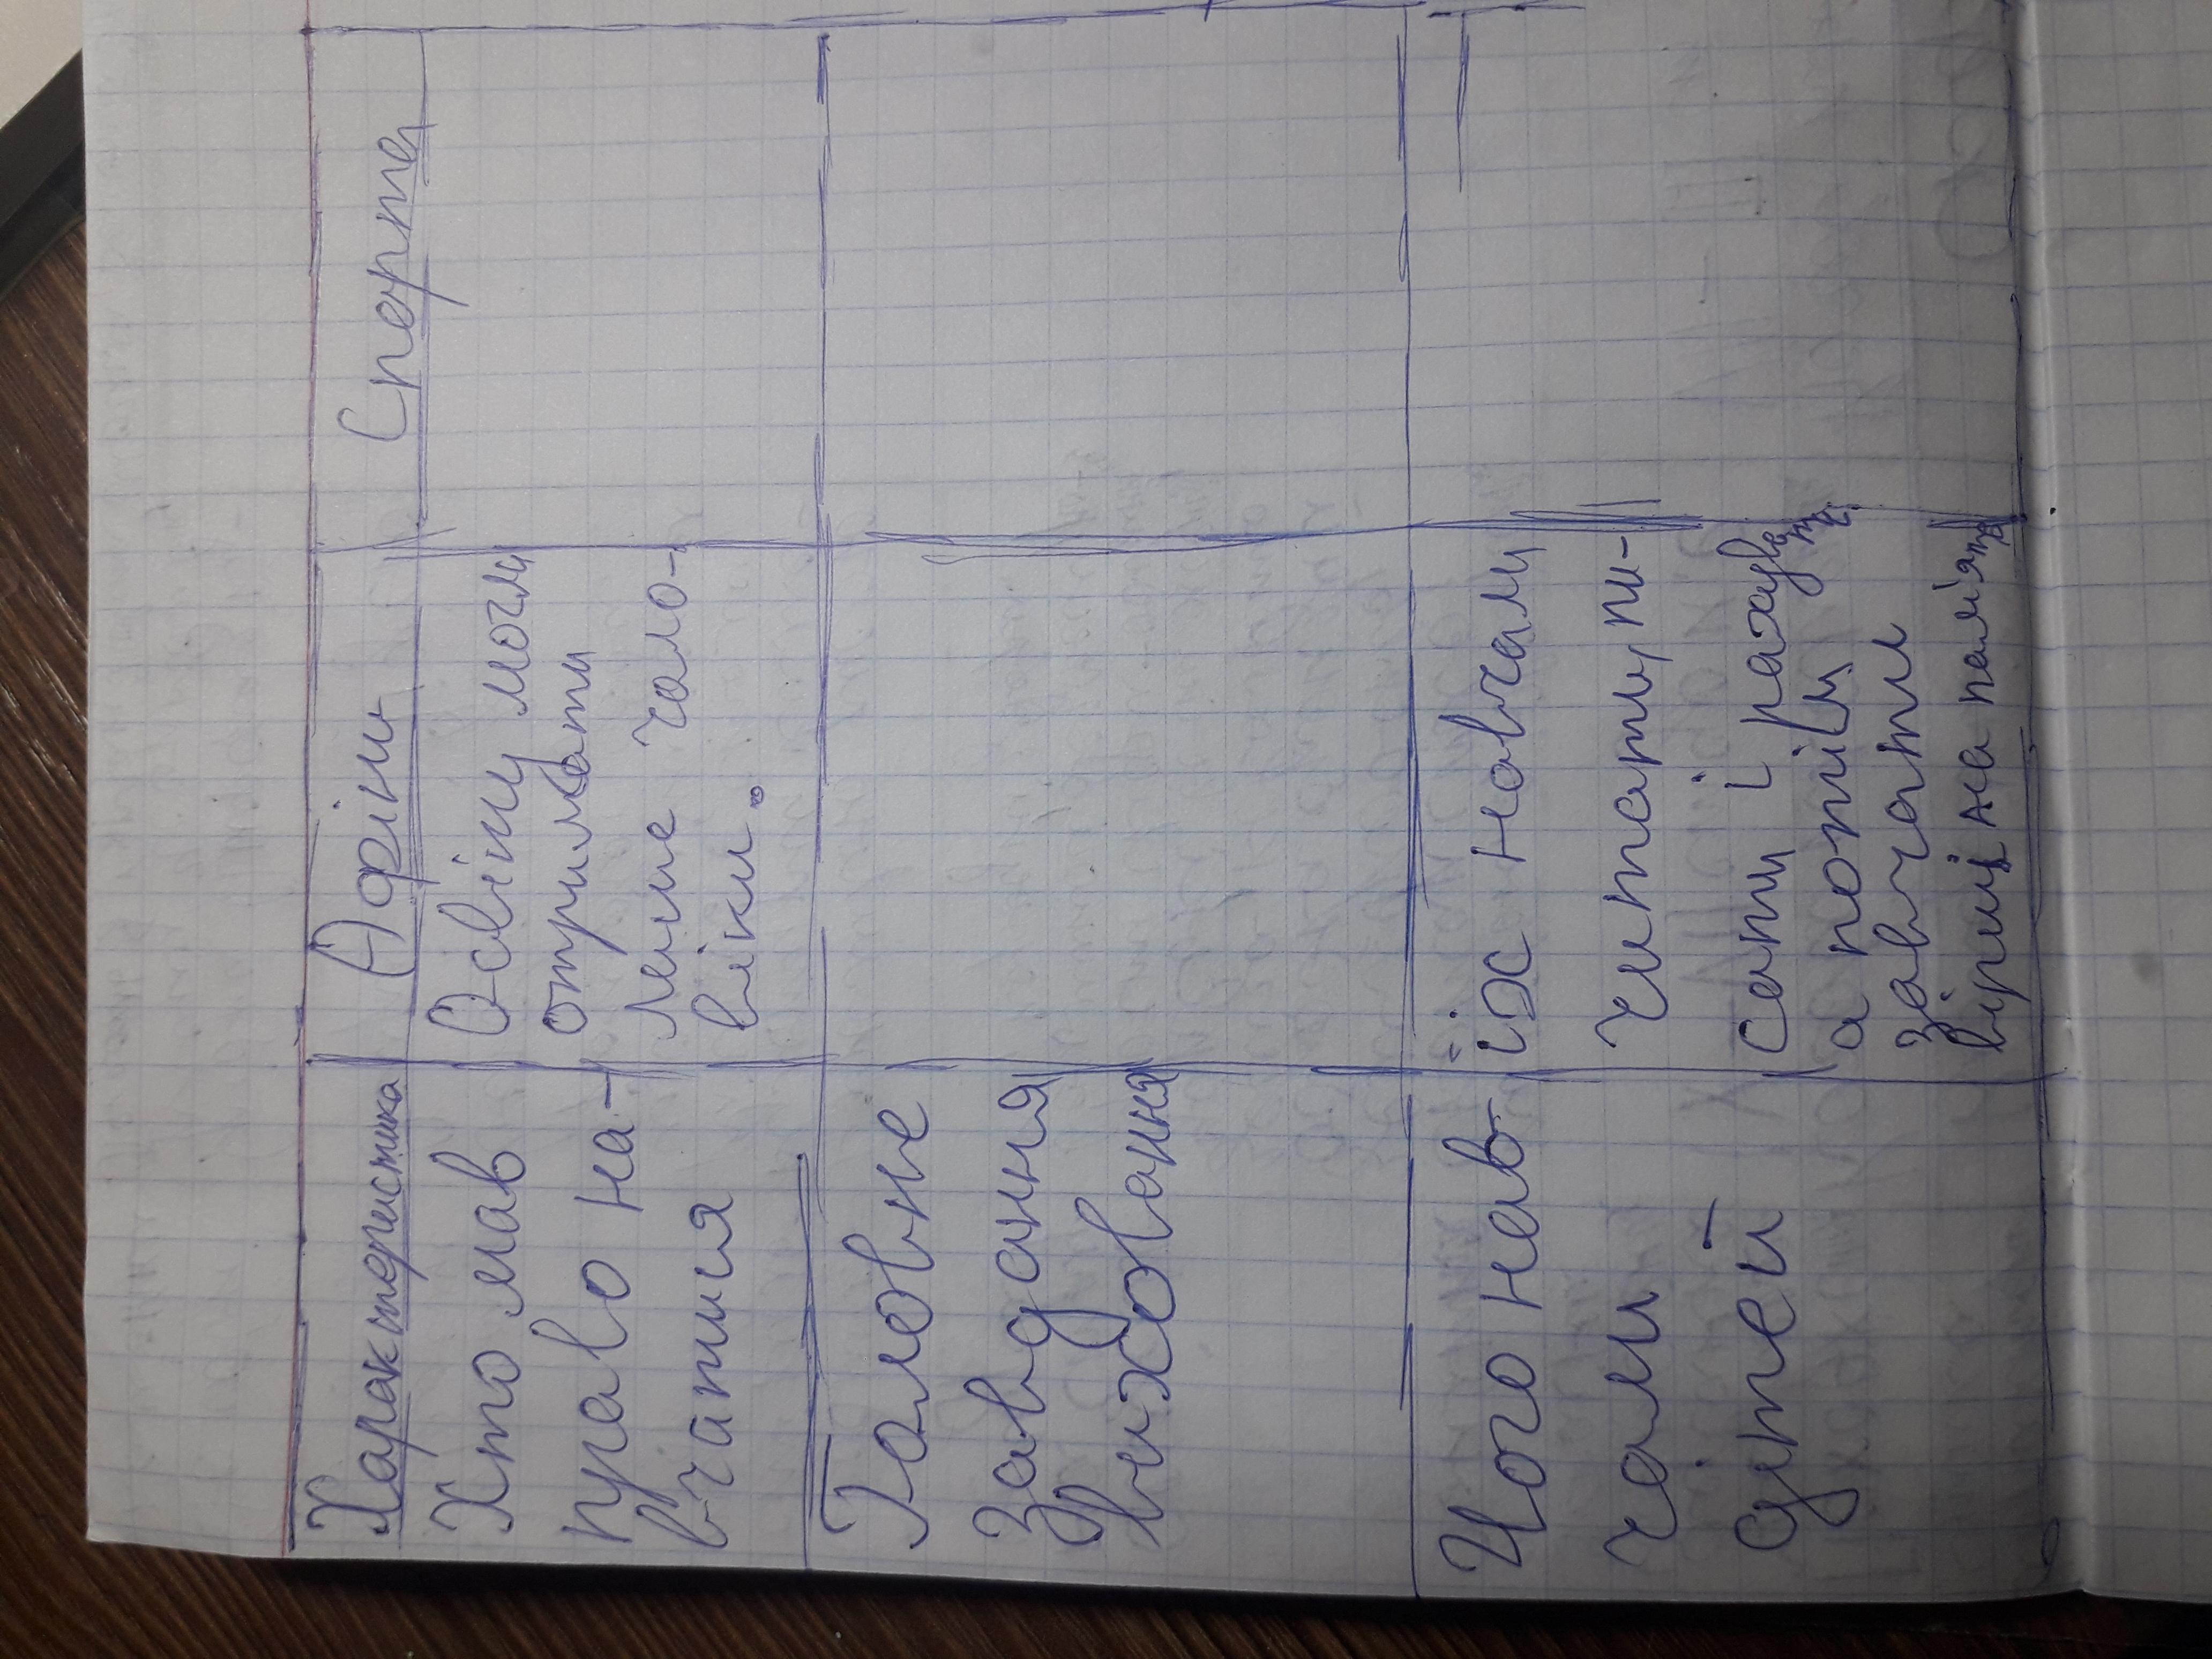 Характеристика
Афіни
Спарта
Хто мав
право на-
вчатися
Освіту могли
отримати
лише чоло-
віки.
Головне
завдання
виховання
Чого нав-
чали
дітей
їх навчали
читати, пи-
сати і рахувати,
а потім
завчати
вірші на пам'ять